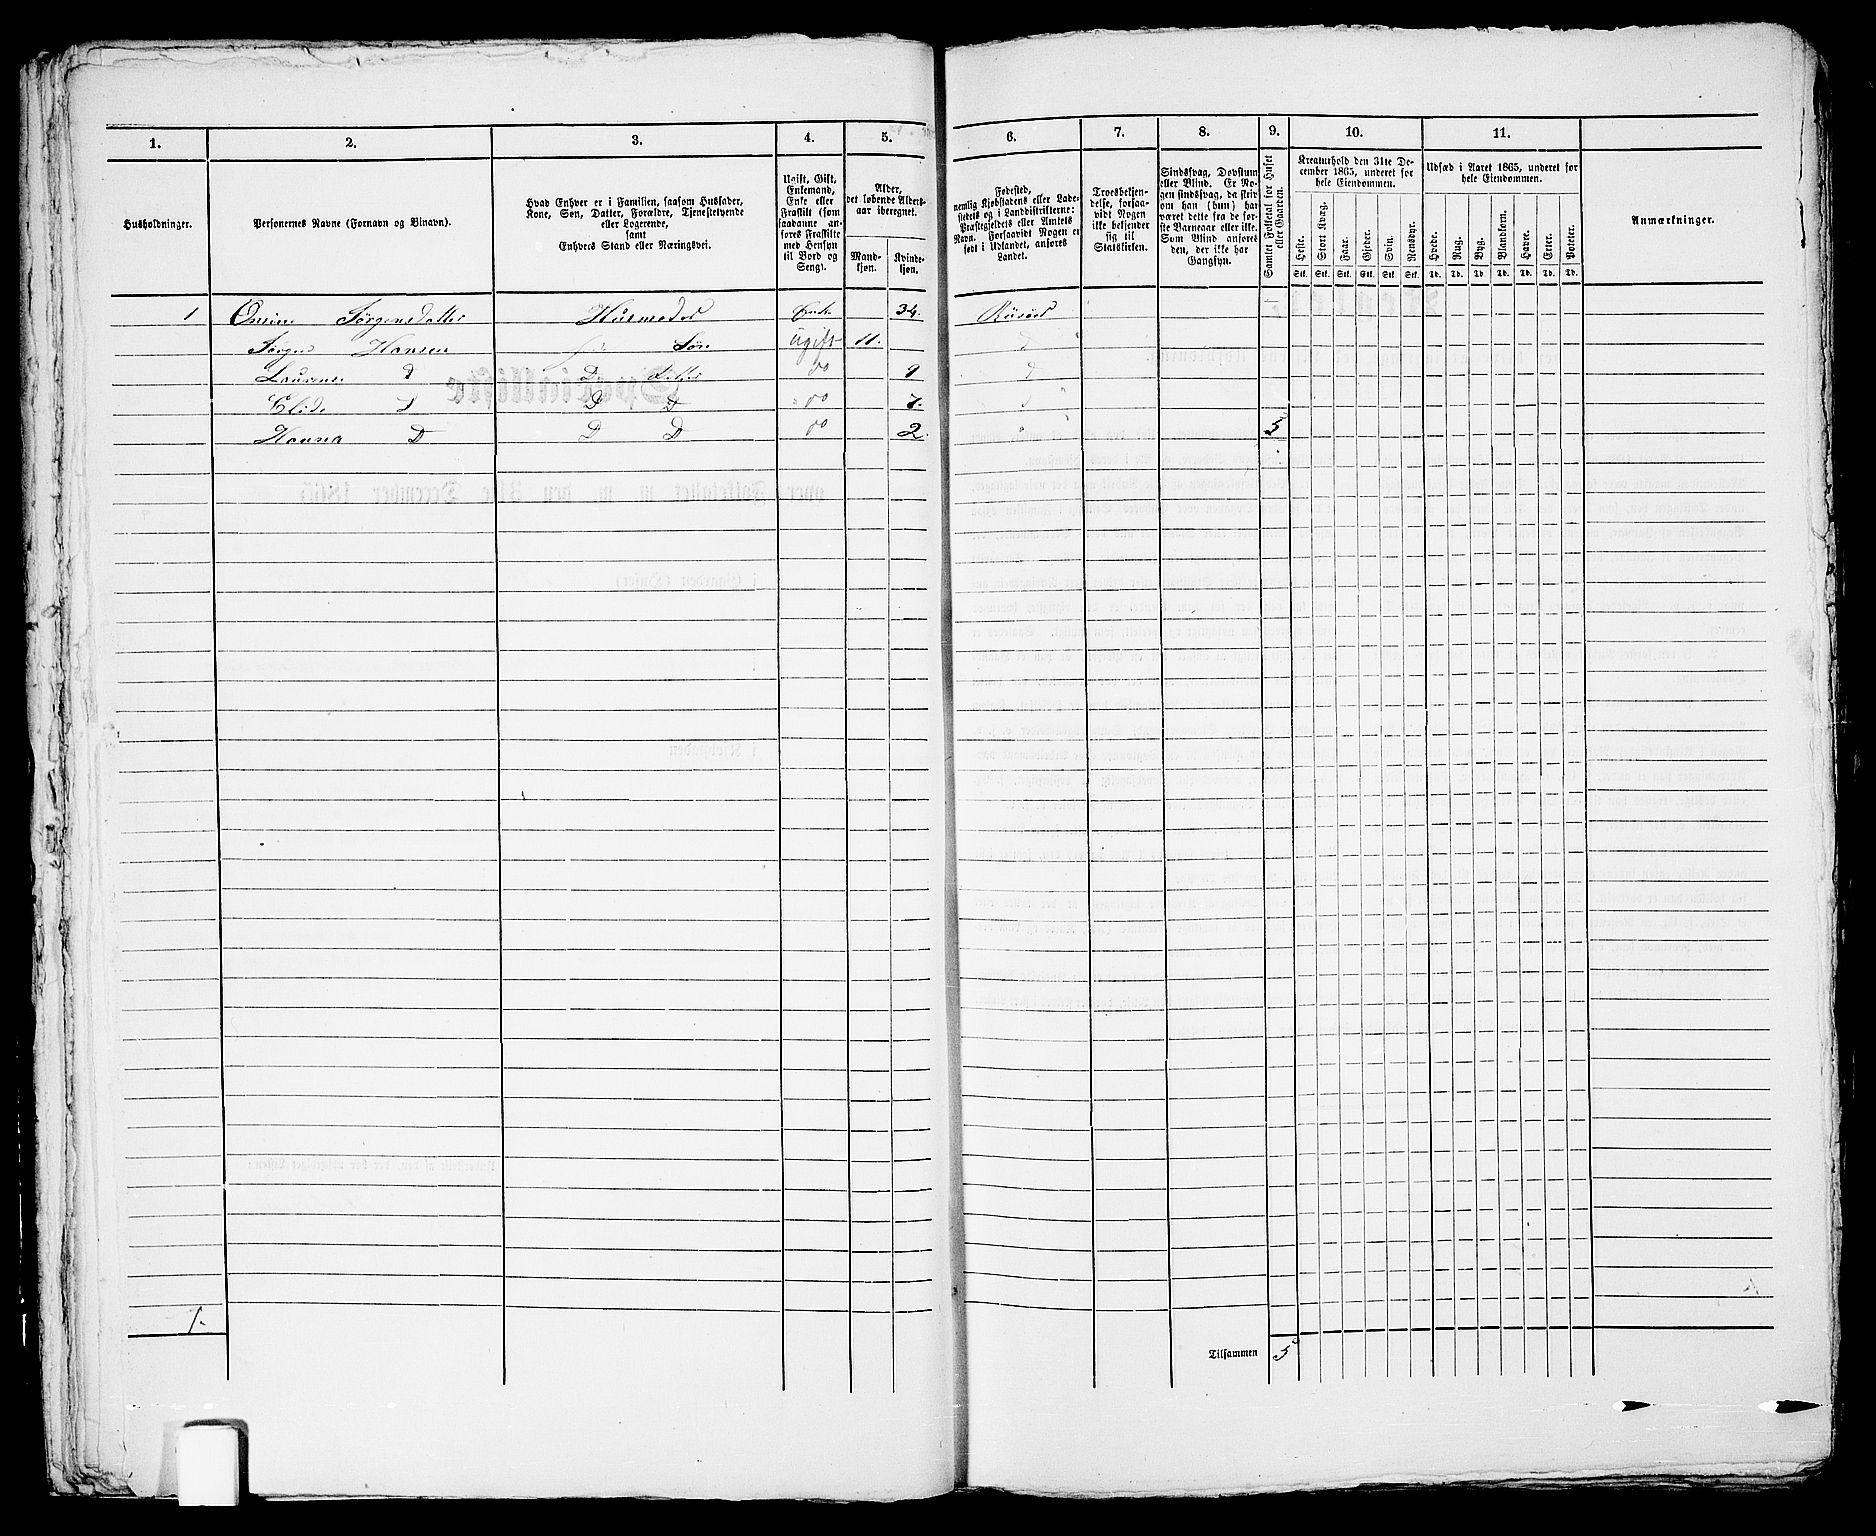 1.
2.
3.
4.
5.
6.
7.
8.
9.
10.
11.
Husholdninger.
Personernes Navne (Fornavn og Binavn).
Hvad Enhver er i Familien, saasom Husfader,
Kone, Søn, Datter, Forældre, Tjenestetyende
eller Logerende,
samt
Enhvers Stand eller Næringsvei.
Ugift, Gift,
Enkemand,
Enke eller
Fraskilt (som
saadanne an-
føres Fraskilte
med Hensyn
til Bord og
Seng).
Alder,
det løbende Alders-
aar iberegnet.
Mand-
kjøn.
Kvinde-
kjøn.
Fødested,
nemlig Kjøbstadens eller Lade-
stedets og i Landdistrikterne:
Præstegjeldets eller Amtets
Navn. Forsaavidt Nogen er
født i Udlandet, anføres
Landet.
Troesbekjen-
delse, forsaa-
vidt Nogen
ikke bekjender
sig til
Statskirken.
Sindssvag, Døvstum
eller Blind. Er No-
gen sindssvag, da skriv
om han (hun) har
været dette fra de før-
ste Barneaar eller ikke.
Som Blind anføres
den, der ikke har
Gangsyn.
Samlet Folketal for Huset
eller Gaarden.
Kreaturhold den 31te De-
cember 1865, underet for
hele Eiendommen.
Heste. Stort Kvæg. Faar. Gjeder. Svin. Rensdyr.
Stk. Stk. Stk. Stk. Stk. Stk.
Udsæd i Aaret 1865, underet for
hele Eiendommen.
Hvede. Rug. Byg. Blandkorn. Havre. Erter. Poteter.
Td. Td. Td. Td. Td. Td. Td.
Anmærkninger.
1 Jørgensdatter Husmoder Enke 34. Risøer
Jørgen Hansen Søn Ugift 11.
D D do 9 D
D D D do 7.
Hanna D D D do 2. 5
1.
Tilsammen 5